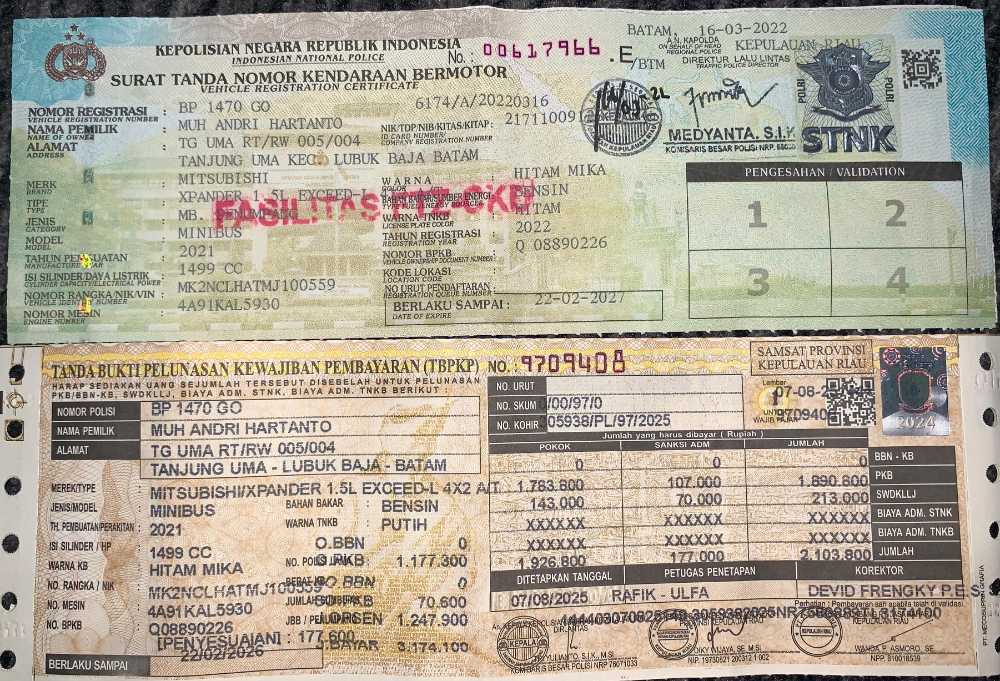 KEPOLISIAN NEGARA REPUBLIK INDONESIA
INDONESIAN NATIONAL POLICE
No.: 00617966 .E
SURAT TANDA NOMOR KENDARAAN BERMOTOR
VEHICLE REGISTRATION CERTIFICATE
BATAM, 16-03-2022
A.N. KAPOLDA KEPULAUAN RIAU
ON BEHALF OF HEAD REGIONAL POLICE
/BTM DIREKTUR LALU LINTAS
TRAFFIC POLICE DIRECTOR
MEDYANTA, S.I.K
KOMISARIS BESAR POLISI NRP.
POLRI POLRI
STNK
NOMOR REGISTRASI : BP 1470 GO 6174/A/20220316
VEHICLE REGISTRATION NUMBER
NAMA PEMILIK : MUH ANDRI HARTANTO
NAME OF OWNER
NIK/TDP/NIB/KITAS/KITAP : 217110091
ID CARD NUMBER/COMPANY NUMBER
ALAMAT : TG UMA RT/RW 005/004
ADDRESS
TANJUNG UMA KEC. LUBUK BAJA BATAM
MERK : MITSUBISHI
BRAND
TIPE : XPANDER 1.5L EXCEED-L
TYPE
JENIS : MB. PENUMPANG
CATEGORY
MODEL : MINIBUS
MODEL
TAHUN PEMBUATAN : 2021
MANUFACTURE YEAR
ISI SILINDER/DAYA LISTRIK : 1499 CC
CYLINDER CAPACITY/ELECTRICAL POWER
NOMOR RANGKA/NIK/VIN : MK2NCLHATMJ100559
VEHICLE IDENTITY NUMBER
NOMOR MESIN : 4A91KAL5930
ENGINE NUMBER
WARNA : HITAM MIKA
COLOR
BAHAN BAKAR/SUMBER ENERGI : BENSIN
TYPE FUEL/ENERGY SOURCE
WARNA TNKB : HITAM
LICENSE PLATE COLOR
TAHUN REGISTRASI : 2022
REGISTRATION YEAR
NOMOR BPKB : Q 08890226
VEHICLE OWNERSHIP DOCUMENT NUMBER
KODE LOKASI :
LOCATION CODE
NO URUT PENDAFTARAN :
REGISTRATION QUEUE NUMBER
BERLAKU SAMPAI : 22-02-2027
DATE OF EXPIRE
FASILITAS
PENGESAHAN / VALIDATION
1 2
3 4
TANDA BUKTI PELUNASAN KEWAJIBAN PEMBAYARAN (TBPKP) NO.: 9709408
HARAP SEDIAKAN UANG SEJUMLAH TERSEBUT DISEBELAH UNTUK PELUNASAN
PKB/BBN-KB, SWDKLLJ, BIAYA ADM. STNK, BIAYA ADM. TNKB BERIKUT :
SAMSAT PROVINSI
KEPULAUAN RIAU
Lembar 1
UNTUK
WAJIB PAJAK
2024
NOMOR POLISI BP 1470 GO
NAMA PEMILIK MUH ANDRI HARTANTO
ALAMAT TG UMA RT/RW 005/004
TANJUNG UMA - LUBUK BAJA - BATAM
MEREK/TYPE MITSUBISHI/XPANDER 1.5L EXCEED-L 4X2 A/T
JENIS/MODEL MINIBUS BAHAN BAKAR : BENSIN
TH. PEMBUATAN/PERAKITAN : 2021 WARNA TNKB : PUTIH
ISI SILINDER / HP : 1499 CC O.BBN 0
WARNA KB : HITAM MIKA NO. POLISI O.PKB : 1.177.300
NO. RANGKA / NIK : MK2NCLHATMJ100559 BBN 0
NO. MESIN : 4A91KAL5930 70.600
NO. BPKB : Q08890226 OPSEN 1.247.900
[PENYESUAIAN] : 177.600 S.BAYAR 3.174.100
BERLAKU SAMPAI 22/02/2026
NO. URUT
NO. SKUM /00/97/0
NO. KOHIR 05938/PL/97/2025
Jumlah yang harus dibayar ( Rupiah )
POKOK SANKSI ADM JUMLAH
0 0 0 BBN - KB
1.783.800 107.000 1.890.800 PKB
143.000 70.000 213.000 SWDKLLJ
XXXXXX XXXXXX XXXXXX BIAYA ADM. STNK
XXXXXX XXXXXX XXXXXX BIAYA ADM. TNKB
1.926.800 177.000 2.103.800 JUMLAH
DITETAPKAN TANGGAL PETUGAS PENETAPAN KOREKTOR
07/08/2025 RAFIK - ULFA DEVID FRENGKY P.E.S.
Perhatian : Pembayaran sah apabila telah di validasi